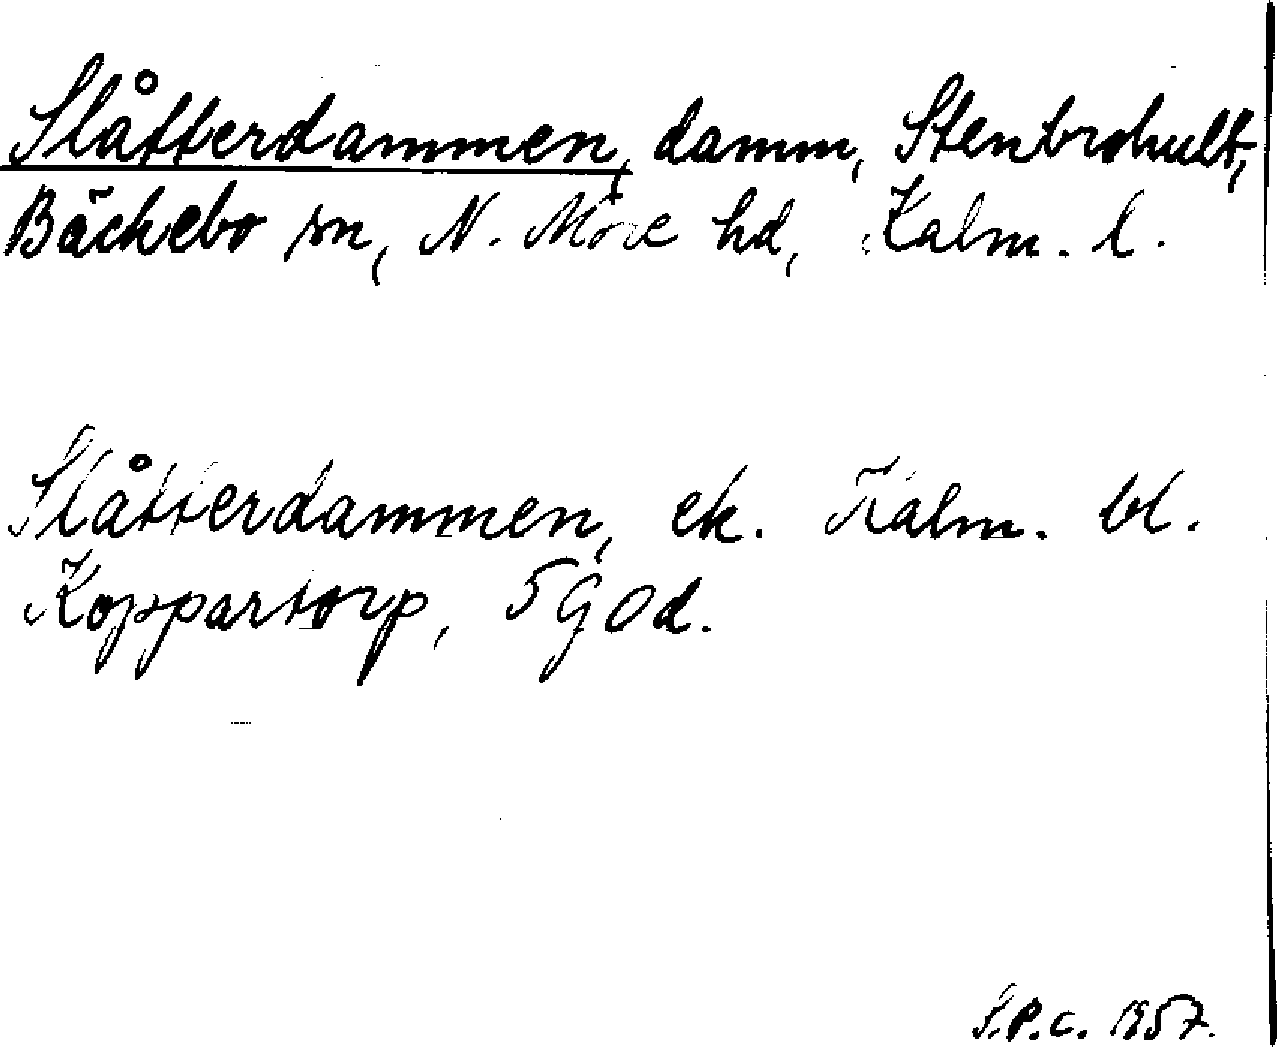 Slåtterdammen, damm, Stenbrohult,
Bäckebo sn, N. Möre hd, Kalm. l.
Slåtterdammen, ek. Kalm. bl.
Koppartorp, 5 G 0 d.
S.P.C. 1957.